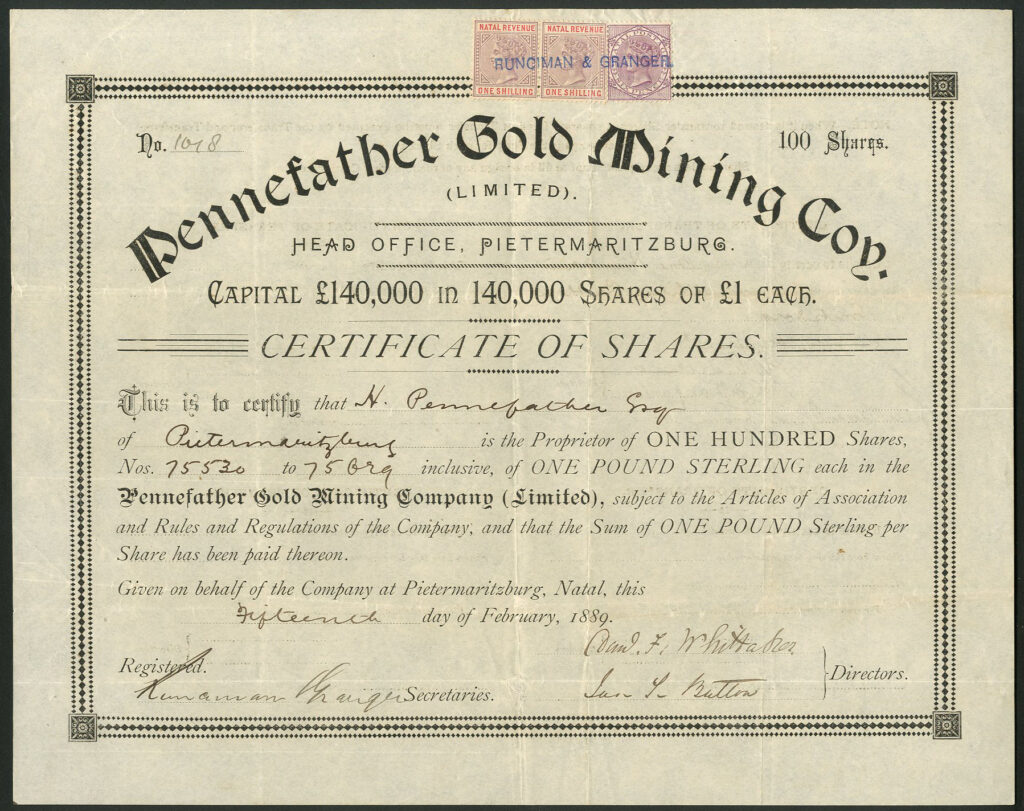 NATAL REVENUE NATAL REVENUE
RUNCIMAN & GRANGER.
ONE SHILLING ONE SHILLING
No. 1018
100 Shares.
Pennefather Gold Mining Coy.
(LIMITED).
HEAD OFFICE, PIETERMARITZBURG.
CAPITAL £140,000 IN 140,000 SHARES OF £1 EACH.
CERTIFICATE OF SHARES.
This is to certify that H. Pennefather Esq
of Pietermaritzburg is the Proprietor of ONE HUNDRED Shares,
Nos. 75530 to 75629 inclusive, of ONE POUND STERLING each in the
Pennefather Gold Mining Company (Limited), subject to the Articles of Association
and Rules and Regulations of the Company, and that the Sum of ONE POUND Sterling per
Share has been paid thereon.
Given on behalf of the Company at Pietermaritzburg, Natal, this
Fifteenth day of February, 1889.
F. Whittaker
Registered.
Directors.
Runciman & Granger Secretaries.
Button